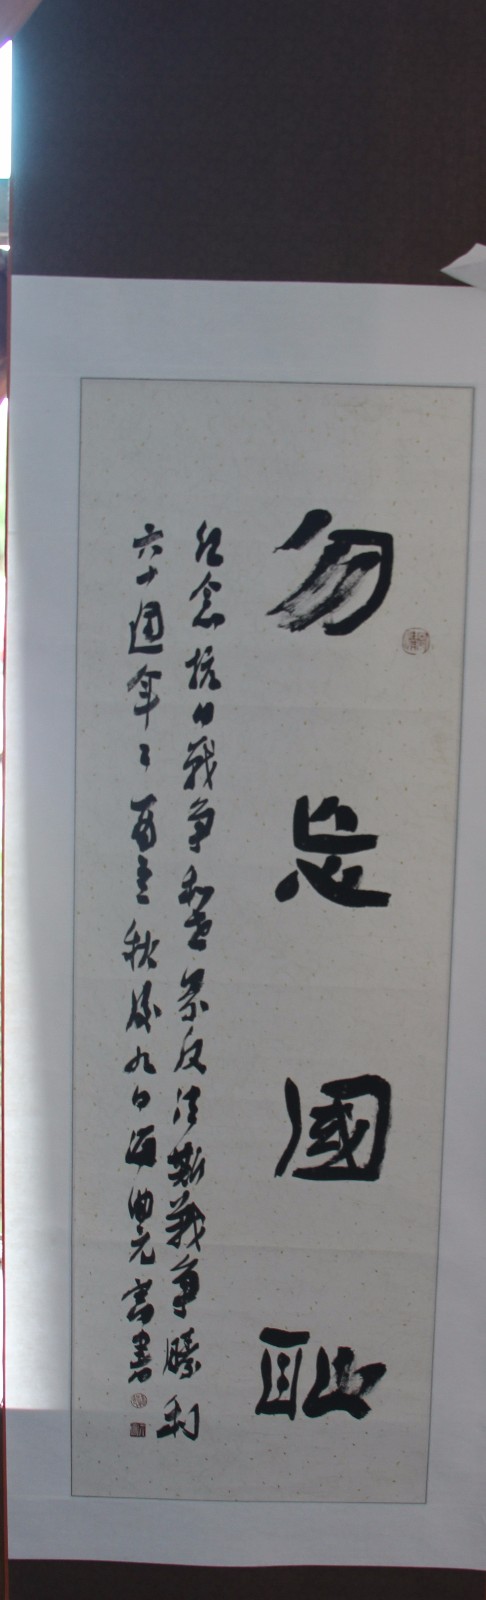 勿忘國恥
紀念抗日戰爔和世界反法斯戰爭勝利
六十週年乙酉秋九日曲元書